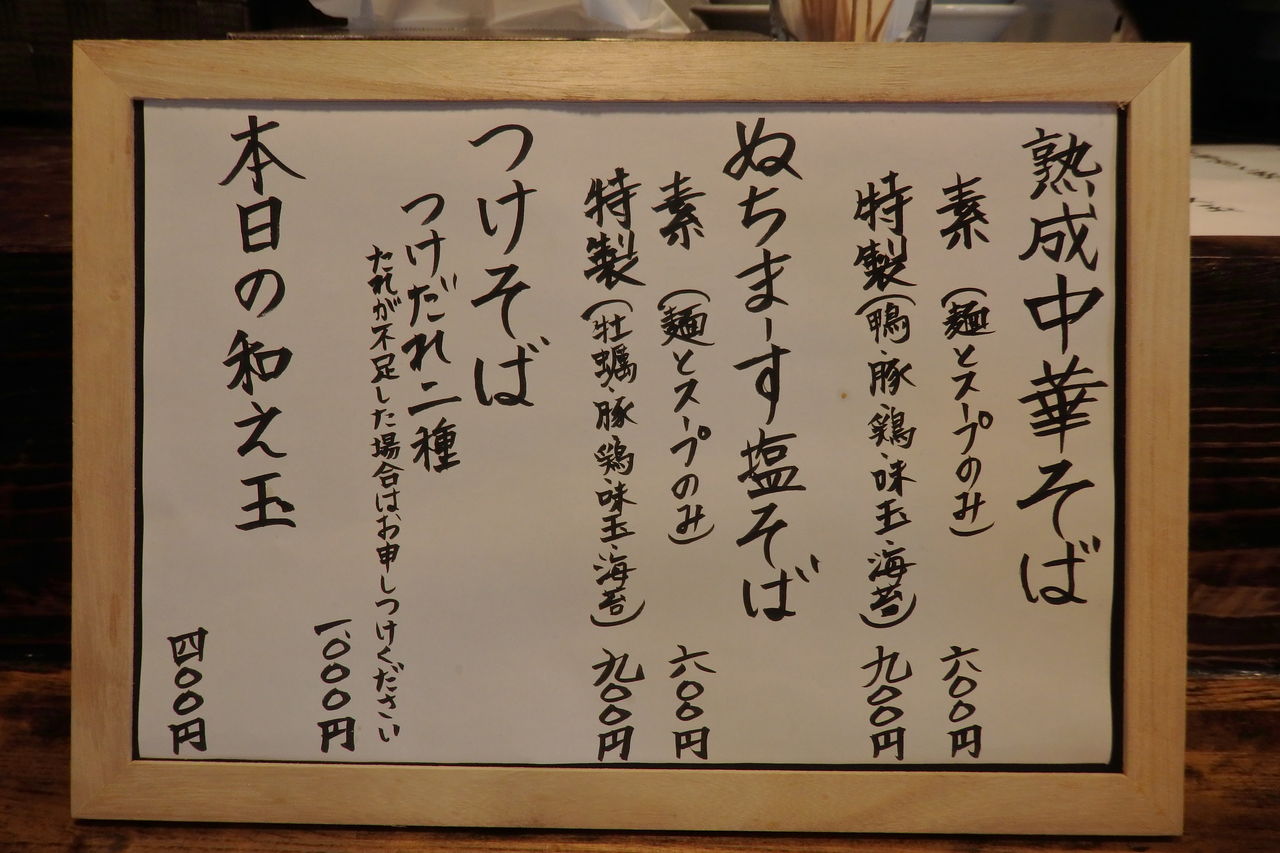 熟成中華そば
素 (麺とスープのみ) 六〇〇円
特製(鴨・豚・鶏・味玉・海苔) 九〇〇円
ぬちまーす塩そば
素 (麺とスープのみ) 六〇〇円
特製(牡蠣・豚・鶏・味玉・海苔) 九〇〇円
つけそば
つけだれ二種
たれが不足した場合はお申しつけください
一、〇〇〇円
本日の和え玉
四〇〇円